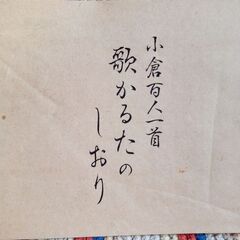 小倉百人一首
歌かるたの
しおり